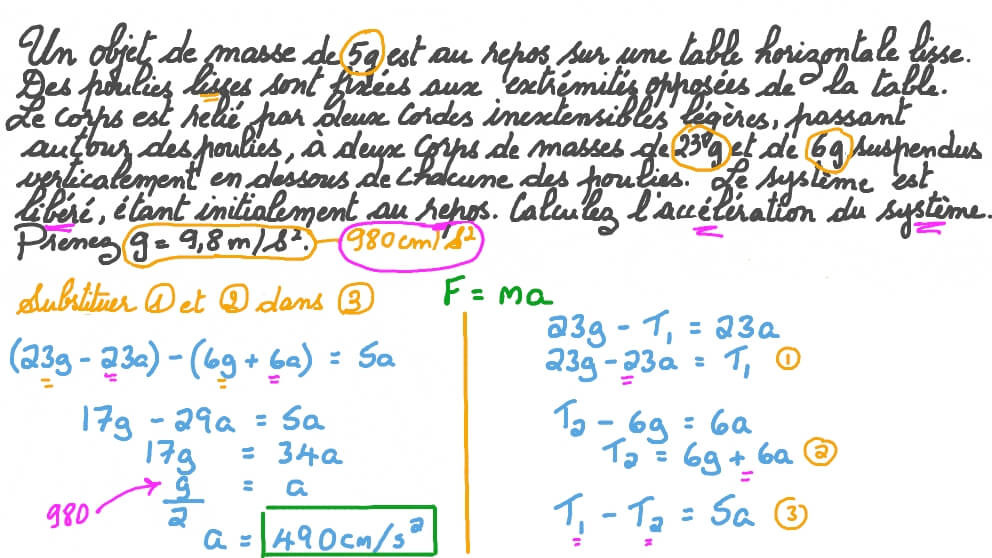 Un objet de masse de 5g est au repos sur une table horizontale lisse.
Des poulies lisses sont fixées aux extrémités opposées de la table.
Le corps est relié par deux cordes inextensibles légères, passant
autour des poulies, à deux corps de masses de 23g et de 6g suspendus
verticalement en dessous de chacune des poulies. Le système est
libéré, étant initialement au repos. Calculez l'accélération du système.
Prenez g = 9,8 m/s². 980 cm/s²
F = ma
Substituer ① et ② dans ③
(23g - 23a) - (6g + 6a) = 5a
17g - 29a = 5a
17g = 34a
980
g/2 = a
a = 490 cm/s²
23g - T₁ = 23a
23g - 23a = T₁ ①
T₂ - 6g = 6a
T₂ = 6g + 6a ②
T₁ - T₂ = 5a ③